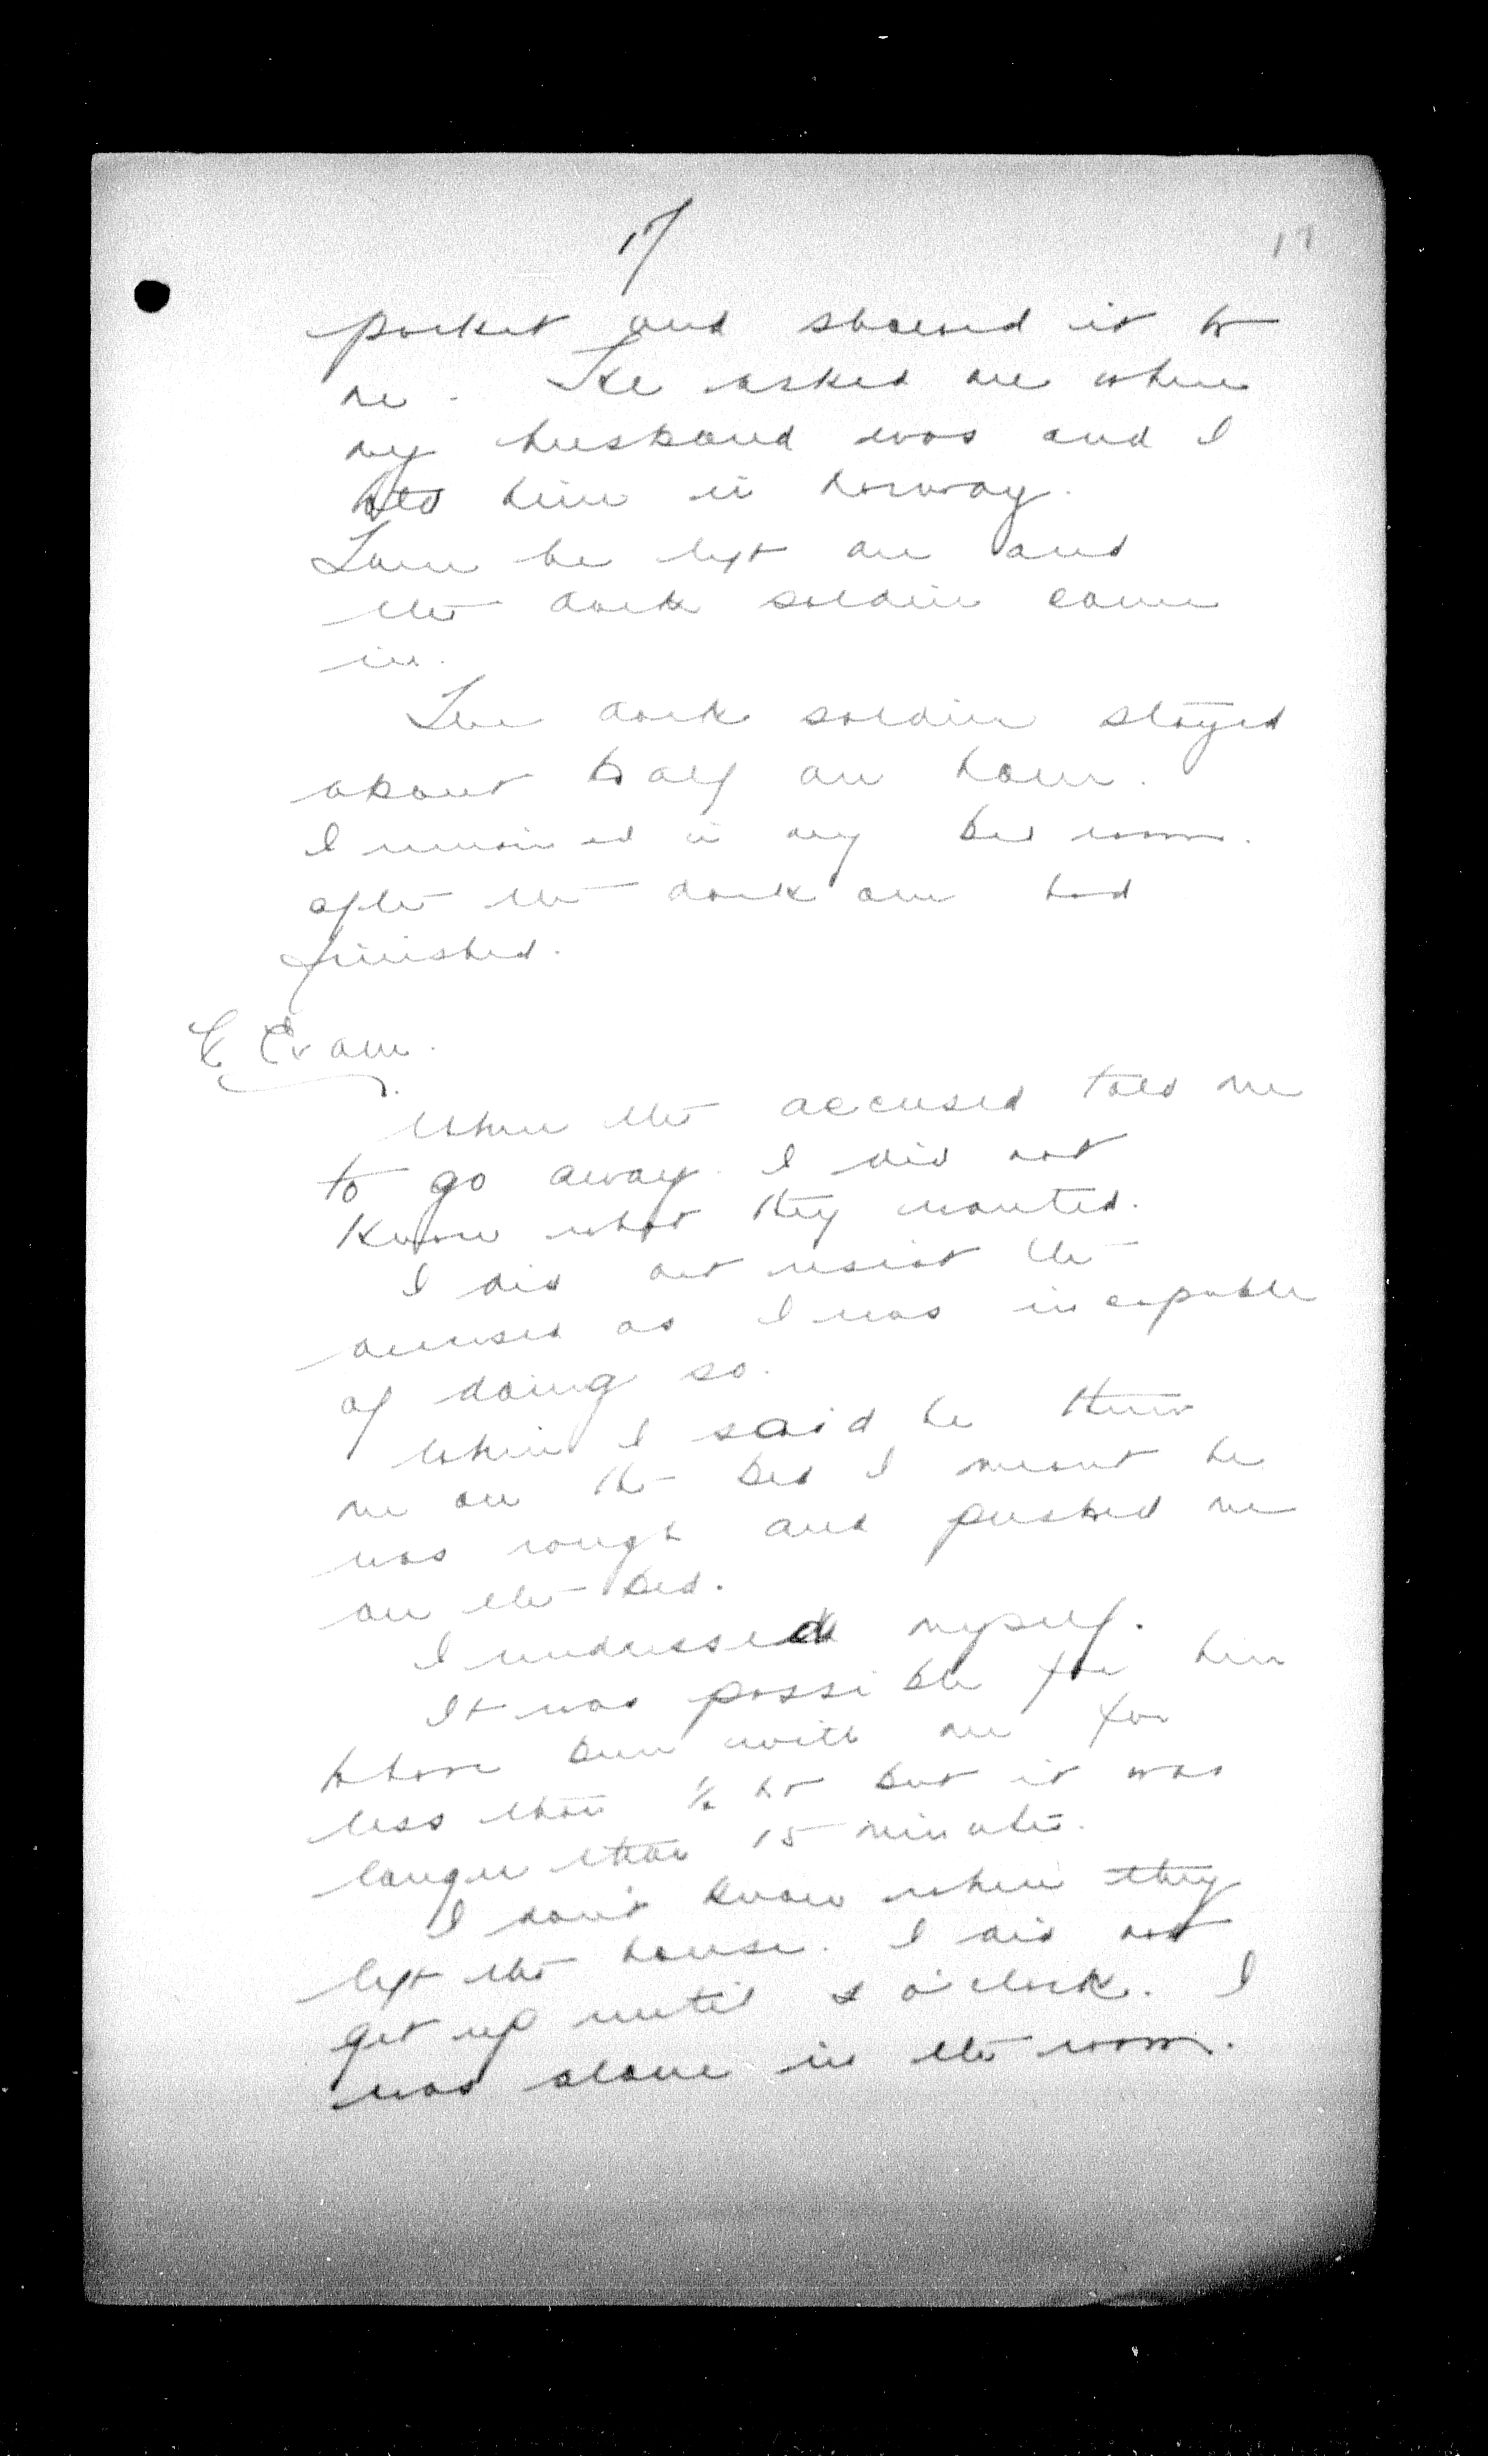 17
17
pocket and showed it to
me. He asked me where
my husband was and I
told him in Norway.
Then he left me and
the dark soldier came
in.
The dark soldier stayed
about half an hour.
I remained in my bed room.
after the dark one had
finished.
X Exam.
When the accused told me
to go away I did not
know what they wanted.
I did not resist the
accused as I was incapable
of doing so.
When I said he threw
me on the bed I meant he
was rough and pushed me
on the bed.
I undressed myself.
It was possible for him
to have been with me for
less than ½ hr but it was
longer than 15 minutes.
I don't know when they
left the house. I did not
get up until 8 o'clock. I
was alone in the room.